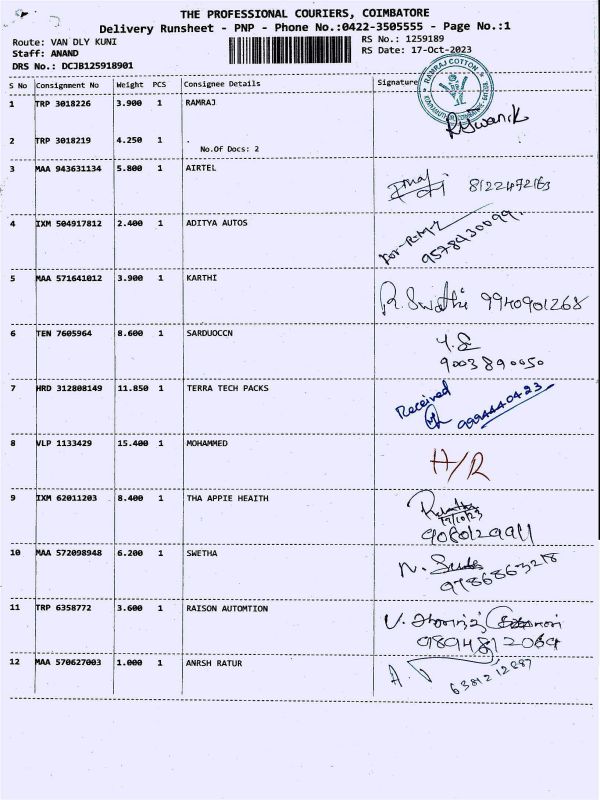 THE PROFESSIONAL COURIERS, COIMBATORE
Delivery Runsheet - PNP - Phone No.:0422-3505555 - Page No.:1
Route: VAN DLY KUNI
RS No.: 1259189
Staff: ANAND
RS Date: 17-Oct-2023
DRS No.: DCJB125918901
S No Consignment No Weight PCS Consignee Details Signature
RAMRAJ COTTON
1 TRP 3018226 3.900 1 RAMRAJ
2 TRP 3018219 4.250 1 .
No.Of Docs: 2
3 MAA 943631134 5.800 1 AIRTEL
8122472163
4 IXM 504917812 2.400 1 ADITYA AUTOS
9578430099
5 MAA 571641012 3.900 1 KARTHI
R. Swathi 9940901268
6 TEN 7605964 8.600 1 SARDUOCCN
9003890050
7 HRD 312808149 11.850 1 TERRA TECH PACKS
Received
9994440423
8 VLP 1133429 15.400 1 MOHAMMED
H/R
9 IXM 62011203 8.400 1 THA APPIE HEAITH
17/10/23
10 MAA 572098948 6.200 1 SWETHA
9786863218
11 TRP 6358772 3.600 1 RAISON AUTOMTION
9894812064
12 MAA 570627003 1.000 1 ANRSH RATUR
6381212287